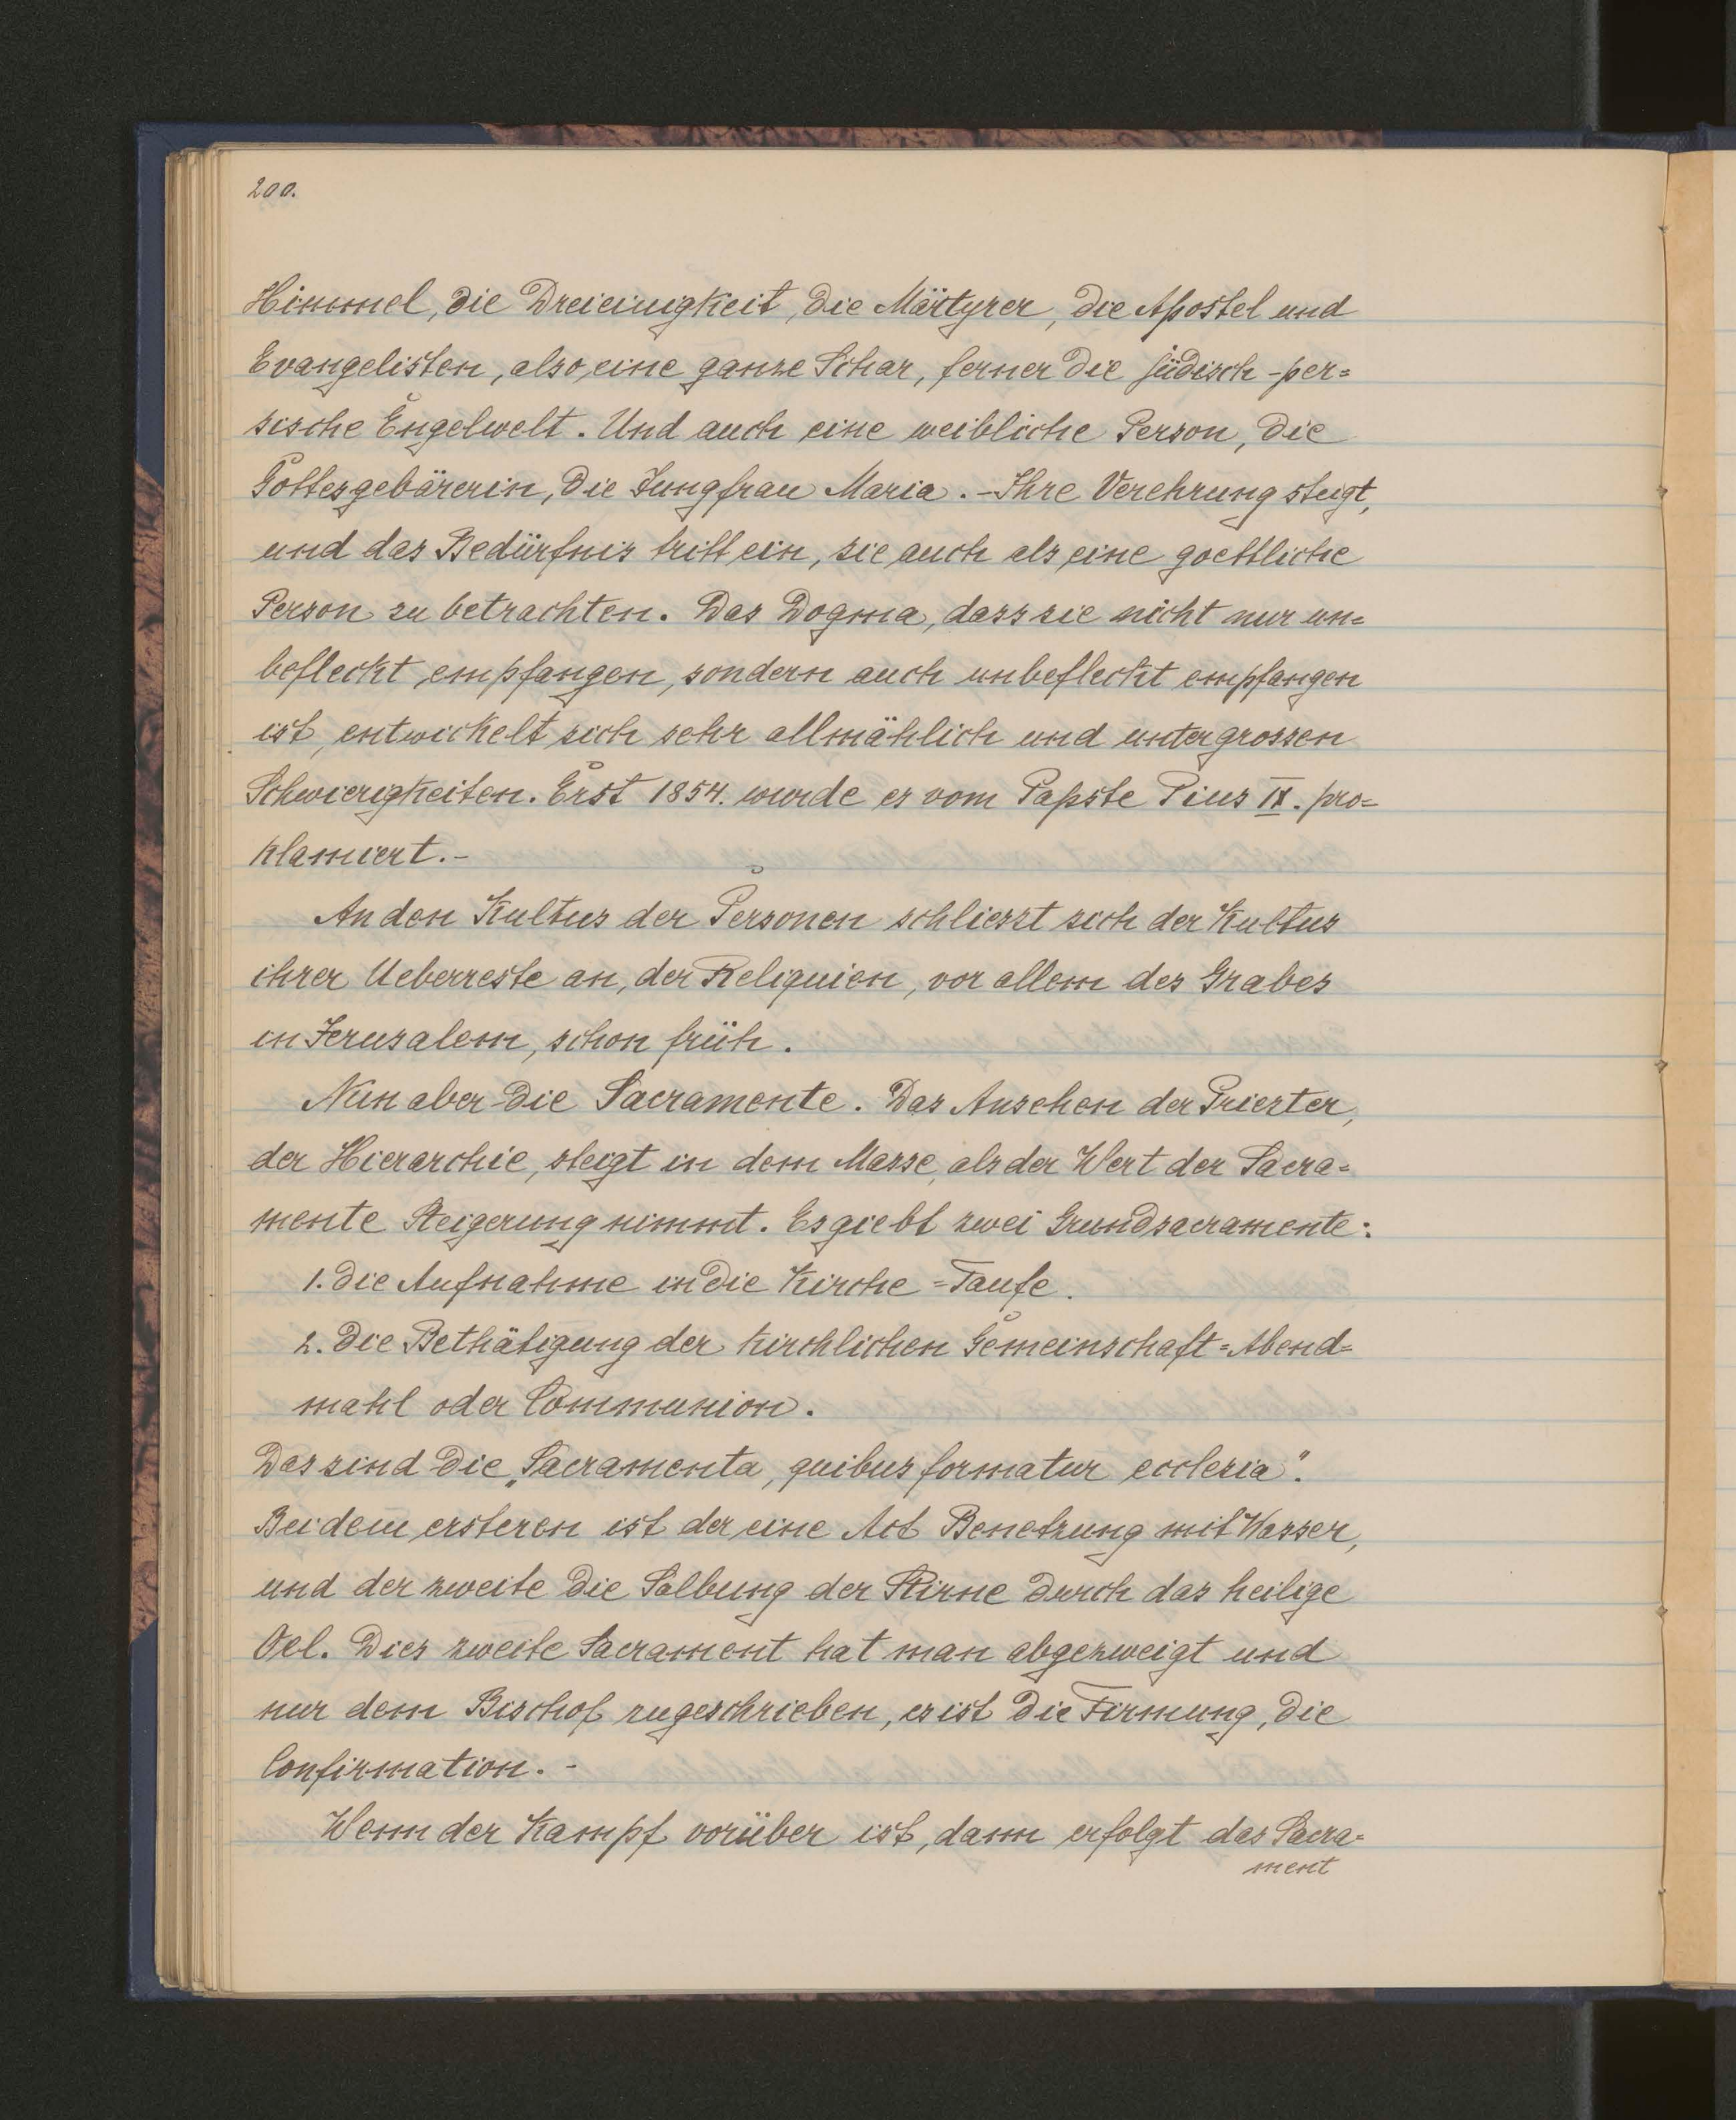 200.
Himmel, die Dreieinigkeit, die Märtyrer, die Apostel und
Evangelisten, also eine ganze Schar, ferner die jüdisch-per=
sische Engelwelt. Und auch eine weibliche Person, die
Gottesgebärerin, die Jungfrau Maria. - Ihre Verehrung steigt,
und das Bedürfnis tritt ein, sie auch als eine goettliche
Person zu betrachten. Das Dogma, dass sie nicht nur un=
befleckt empfangen, sondern auch unbefleckt empfangen
ist, entwickelt sich sehr allmählich und unter grossen
Schwierigkeiten. Erst 1854. wurde es vom Papste Pius IX. pro=
klamiert. -
An den Kultus der Personen schliesst sich der Kultus
ihrer Ueberreste an, der Reliquien, vor allem des Grabes
in Jerusalem, schon früh.
Nun aber die Sacramente. Das Ansehen der Priester,
der Hierarchie, steigt in dem Masse, als der Wert der Sacra=
mente Steigerung nimmt. Es giebt zwei Grundsacramente:
1. die Aufnahme in die Kirche = Taufe.
2. Die Bethätigung der kirchlichen Gemeinschaft = Abend=
mahl oder Communion.
Das sind die „Sacramenta, quibus formatur ecclesia“.
Bei dem ersteren ist der eine Act Benetzung mit Wasser,
und der zweite die Salbung der Stirne durch das heilige
Oel. Dies zweite Sacrament hat man abgezweigt und
nur dem Bischof zugeschrieben, es ist die Firmung, die
Confirmation. -
Wenn der Kampf vorüber ist, dann erfolgt das Sacra=
ment